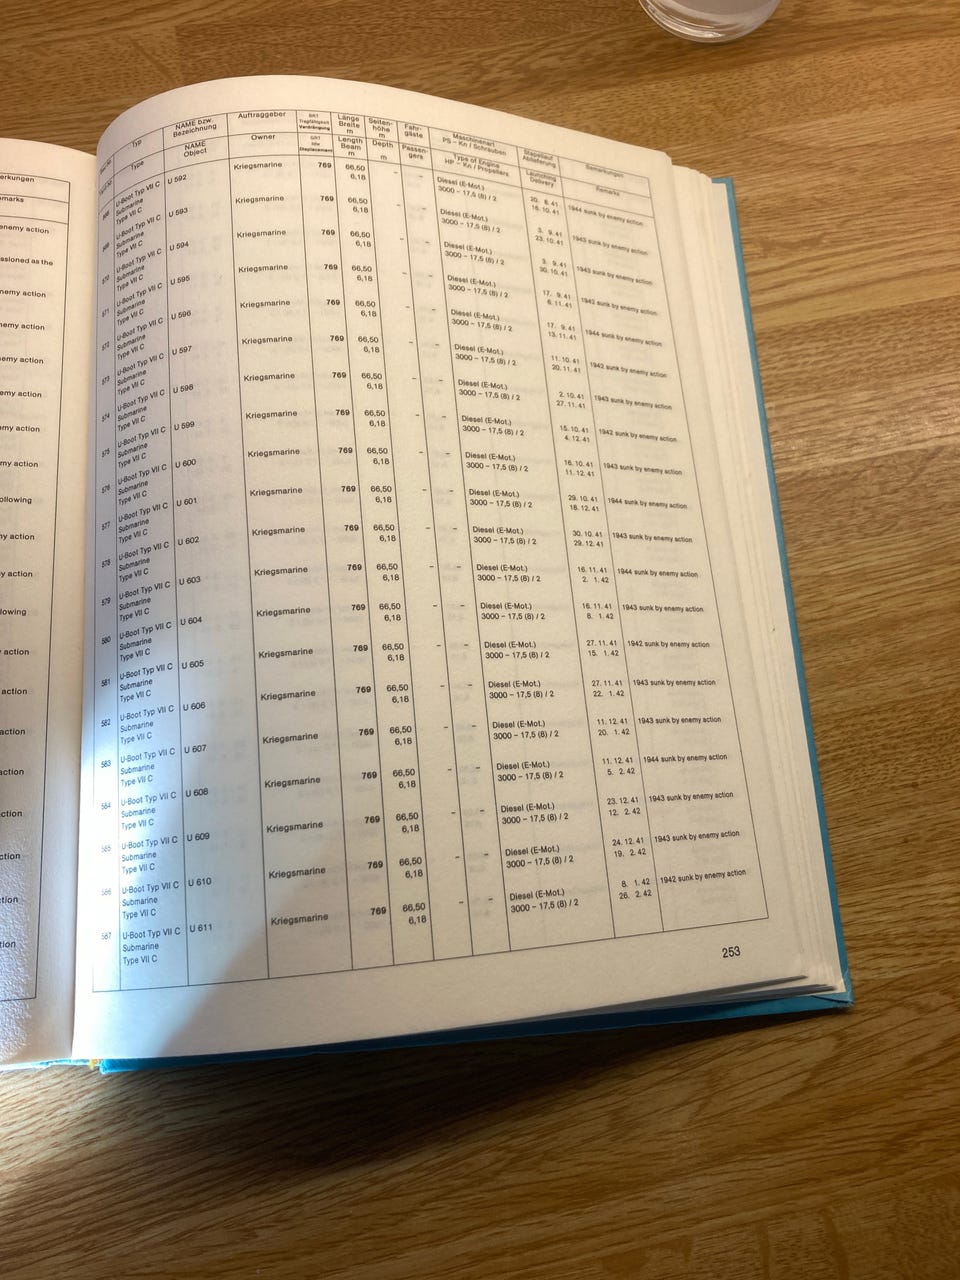 erkungen
emarks
enemy action
ssioned as the
nemy action
nemy action
emy action
emy action
my action
my action
ollowing
ny action
y action
lowing
action
action
action
action
ction
ction
tion
ion
Typ NAME bzw. Bezeichnung Auftraggeber BRT Tragfähigkeit Verdrängung Länge Breite m Seiten-höhe m Fahr-gäste Maschinenart PS – Kn / Schrauben Stapellauf Ablieferung Bemerkungen
Type NAME Object Owner GRT tdw Displacement Length Beam m Depth m Passen-gers Type of Engine HP – Kn / Propellers Launching Delivery Remarks
568 U-Boot Typ VII C U 592 Kriegsmarine 769 66,50 - - Diesel (E-Mot.) 20. 8. 41 1944 sunk by enemy action
Submarine 6,18 3000 – 17,5 (8) / 2 16. 10. 41
Type VII C
569 U-Boot Typ VII C U 593 Kriegsmarine 769 66,50 - - Diesel (E-Mot.) 3. 9. 41 1943 sunk by enemy action
Submarine 6,18 3000 – 17,5 (8) / 2 23. 10. 41
Type VII C
570 U-Boot Typ VII C U 594 Kriegsmarine 769 66,50 - - Diesel (E-Mot.) 3. 9. 41 1943 sunk by enemy action
Submarine 6,18 3000 – 17,5 (8) / 2 30. 10. 41
Type VII C
571 U-Boot Typ VII C U 595 Kriegsmarine 769 66,50 - - Diesel (E-Mot.) 17. 9. 41 1942 sunk by enemy action
Submarine 6,18 3000 – 17,5 (8) / 2 6. 11. 41
Type VII C
572 U-Boot Typ VII C U 596 Kriegsmarine 769 66,50 - - Diesel (E-Mot.) 17. 9. 41 1944 sunk by enemy action
Submarine 6,18 3000 – 17,5 (8) / 2 13. 11. 41
Type VII C
573 U-Boot Typ VII C U 597 Kriegsmarine 769 66,50 - - Diesel (E-Mot.) 11. 10. 41 1942 sunk by enemy action
Submarine 6,18 3000 – 17,5 (8) / 2 20. 11. 41
Type VII C
574 U-Boot Typ VII C U 598 Kriegsmarine 769 66,50 - - Diesel (E-Mot.) 2. 10. 41 1943 sunk by enemy action
Submarine 6,18 3000 – 17,5 (8) / 2 27. 11. 41
Type VII C
575 U-Boot Typ VII C U 599 Kriegsmarine 769 66,50 - - Diesel (E-Mot.) 15. 10. 41 1942 sunk by enemy action
Submarine 6,18 3000 – 17,5 (8) / 2 4. 12. 41
Type VII C
576 U-Boot Typ VII C U 600 Kriegsmarine 769 66,50 - - Diesel (E-Mot.) 16. 10. 41 1943 sunk by enemy action
Submarine 6,18 3000 – 17,5 (8) / 2 11. 12. 41
Type VII C
577 U-Boot Typ VII C U 601 Kriegsmarine 769 66,50 - - Diesel (E-Mot.) 29. 10. 41 1944 sunk by enemy action
Submarine 6,18 3000 – 17,5 (8) / 2 18. 12. 41
Type VII C
578 U-Boot Typ VII C U 602 Kriegsmarine 769 66,50 - - Diesel (E-Mot.) 30. 10. 41 1943 sunk by enemy action
Submarine 6,18 3000 – 17,5 (8) / 2 29. 12. 41
Type VII C
579 U-Boot Typ VII C U 603 Kriegsmarine 769 66,50 - - Diesel (E-Mot.) 16. 11. 41 1944 sunk by enemy action
Submarine 6,18 3000 – 17,5 (8) / 2 2. 1. 42
Type VII C
580 U-Boot Typ VII C U 604 Kriegsmarine 769 66,50 - - Diesel (E-Mot.) 16. 11. 41 1943 sunk by enemy action
Submarine 6,18 3000 – 17,5 (8) / 2 8. 1. 42
Type VII C
581 U-Boot Typ VII C U 605 Kriegsmarine 769 66,50 - - Diesel (E-Mot.) 27. 11. 41 1942 sunk by enemy action
Submarine 6,18 3000 – 17,5 (8) / 2 15. 1. 42
Type VII C
582 U-Boot Typ VII C U 606 Kriegsmarine 769 66,50 - - Diesel (E-Mot.) 27. 11. 41 1943 sunk by enemy action
Submarine 6,18 3000 – 17,5 (8) / 2 22. 1. 42
Type VII C
583 U-Boot Typ VII C U 607 Kriegsmarine 769 66,50 - - Diesel (E-Mot.) 11. 12. 41 1943 sunk by enemy action
Submarine 6,18 3000 – 17,5 (8) / 2 20. 1. 42
Type VII C
584 U-Boot Typ VII C U 608 Kriegsmarine 769 66,50 - - Diesel (E-Mot.) 11. 12. 41 1944 sunk by enemy action
Submarine 6,18 3000 – 17,5 (8) / 2 5. 2. 42
Type VII C
585 U-Boot Typ VII C U 609 Kriegsmarine 769 66,50 - - Diesel (E-Mot.) 23. 12. 41 1943 sunk by enemy action
Submarine 6,18 3000 – 17,5 (8) / 2 12. 2. 42
Type VII C
586 U-Boot Typ VII C U 610 Kriegsmarine 769 66,50 - - Diesel (E-Mot.) 24. 12. 41 1943 sunk by enemy action
Submarine 6,18 3000 – 17,5 (8) / 2 19. 2. 42
Type VII C
587 U-Boot Typ VII C U 611 Kriegsmarine 769 66,50 - - Diesel (E-Mot.) 8. 1. 42 1942 sunk by enemy action
Submarine 6,18 3000 – 17,5 (8) / 2 26. 2. 42
Type VII C
253